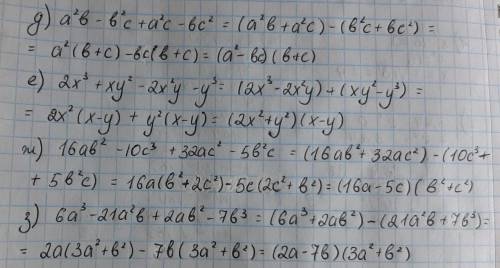 д) a²b - b²c + a²c - bc² = (a²b + a²c) - (b²c + bc²) =
= a²(b+c) - bc(b+c) = (a² - bc)(b+c)
е) 2x³ + xy² - 2x²y - y³ = (2x³ - 2x²y) + (xy² - y³) =
= 2x²(x-y) + y²(x-y) = (2x² + y²)(x-y)
ж) 16ab² - 10c³ + 32ac² - 5b²c = (16ab² + 32ac²) - (10c³ +
+ 5b²c) = 16a(b² + 2c²) - 5c(2c² + b²) = (16a - 5c)(b² + c²)
з) 6a³ - 21a²b + 2ab² - 7b³ = (6a³ + 2ab²) - (21a²b + 7b³) =
= 2a(3a² + b²) - 7b(3a² + b²) = (2a - 7b)(3a² + b²)